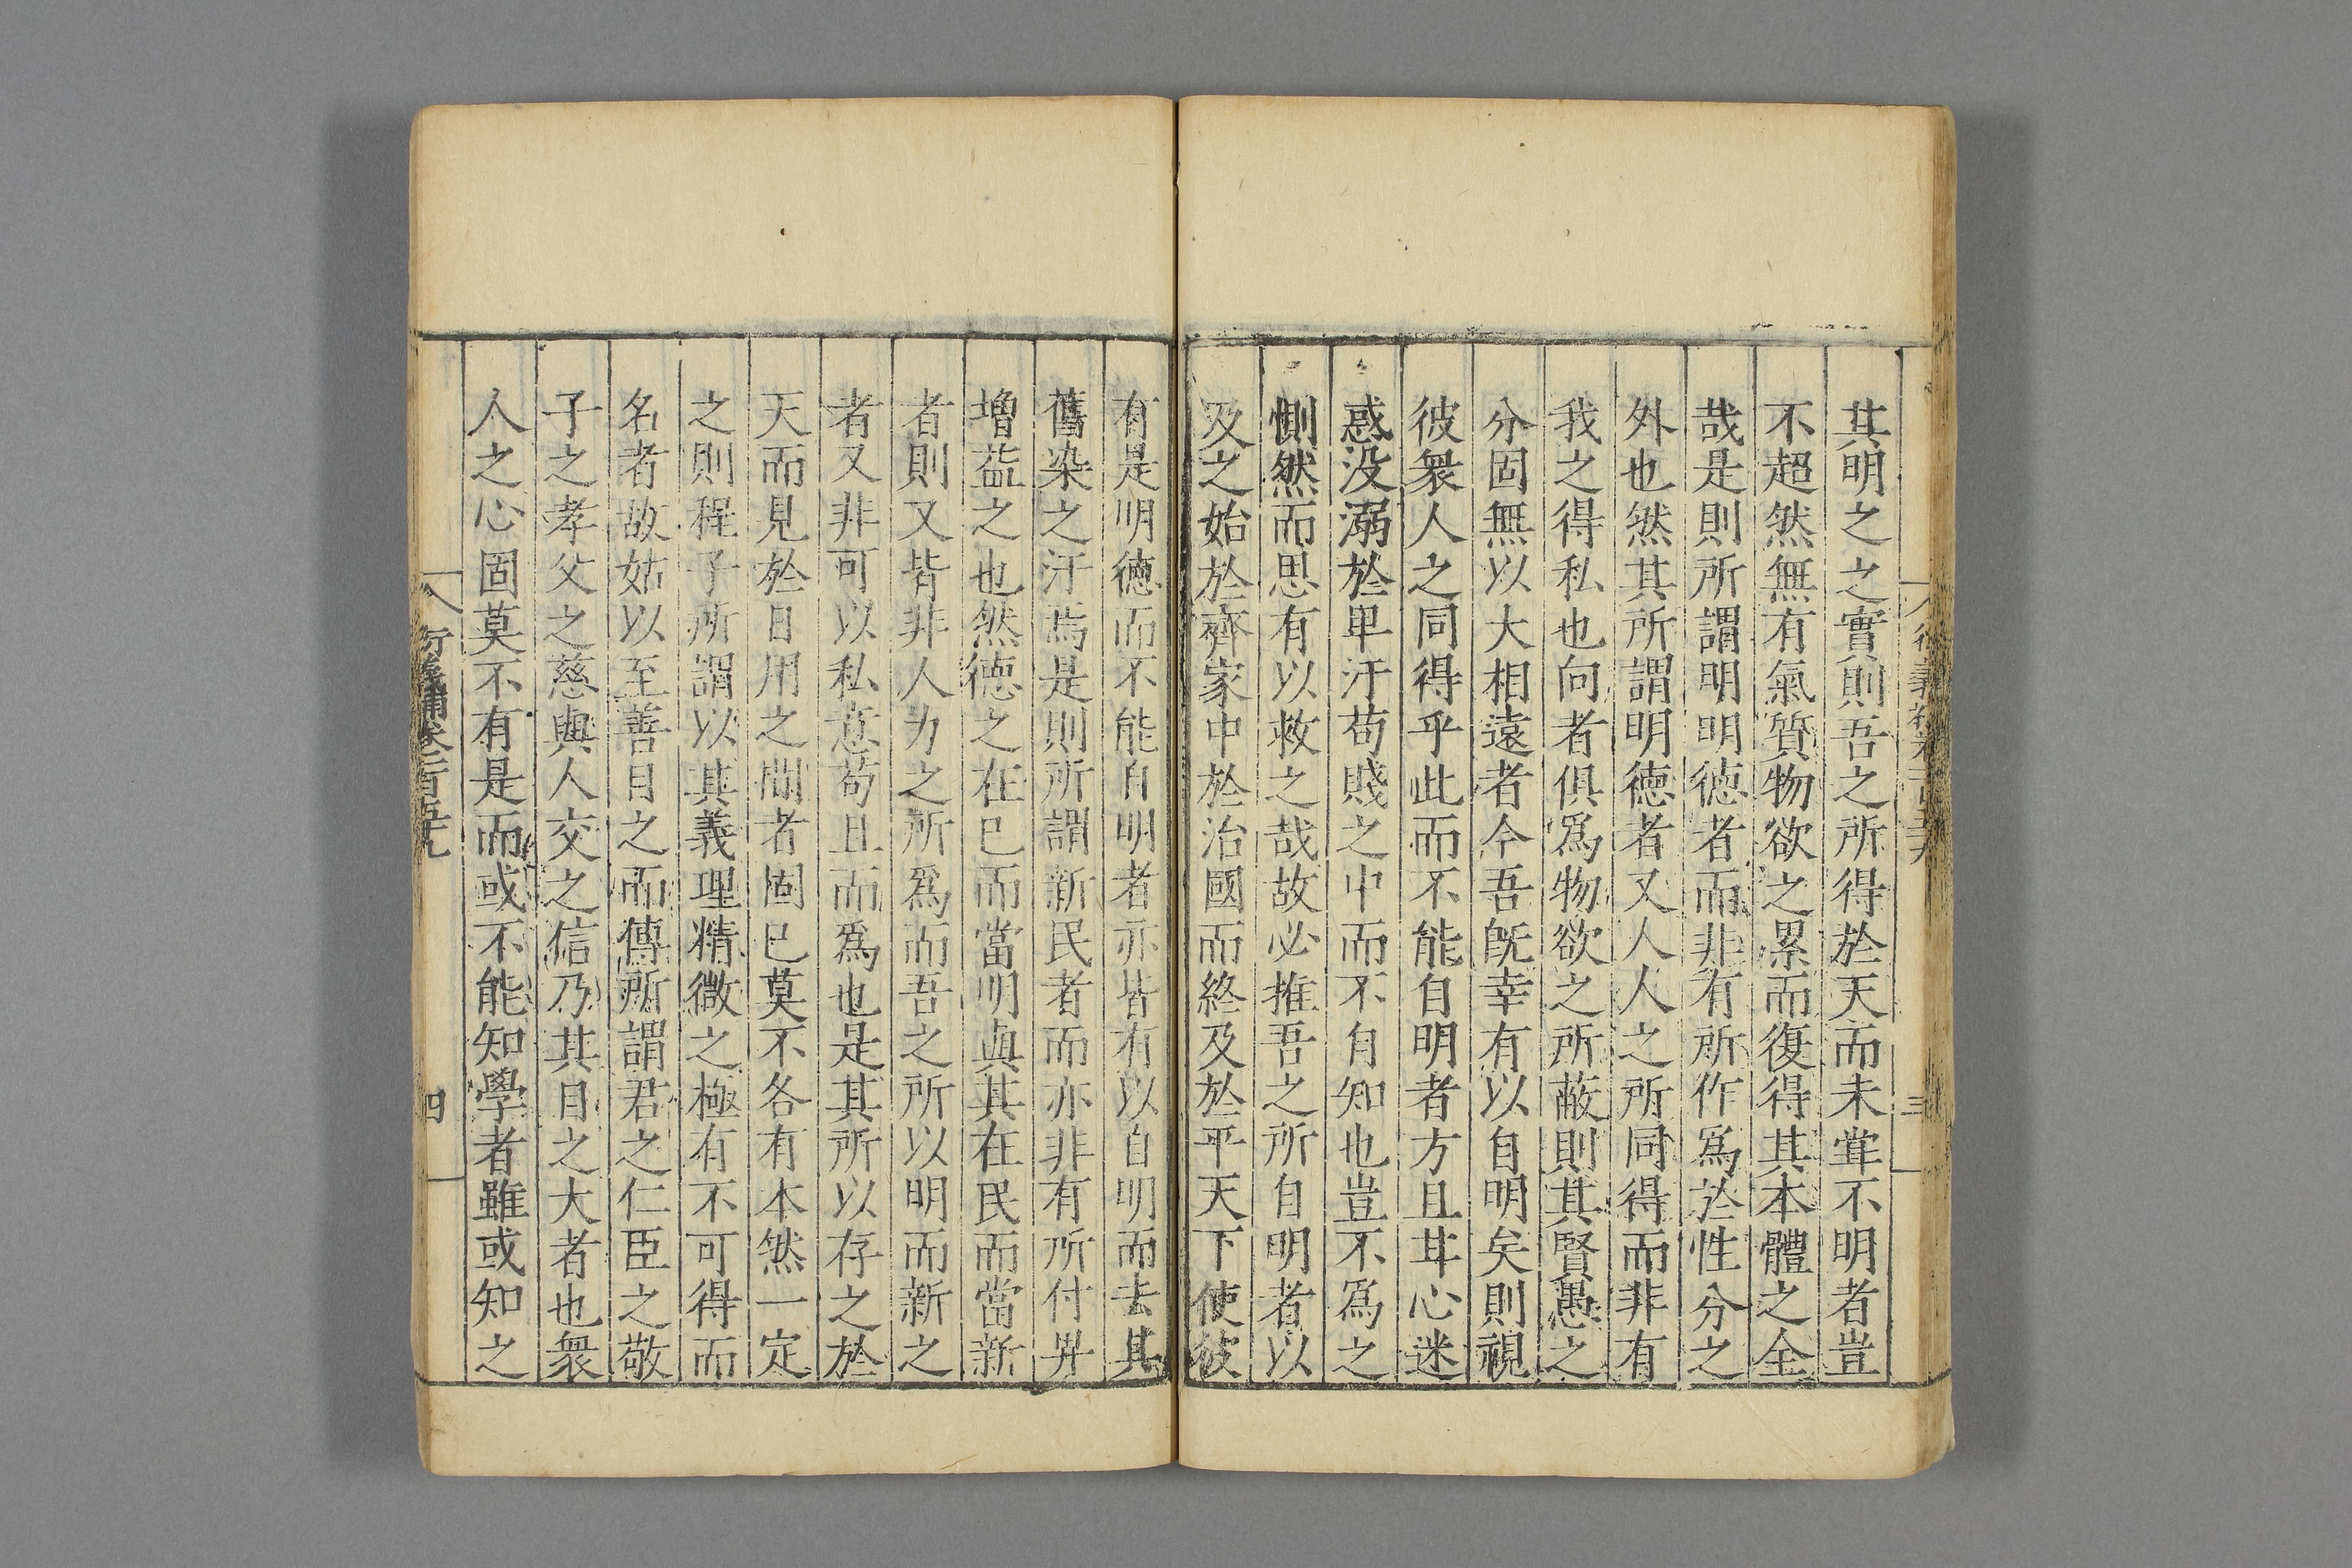 其明之之實則吾之所得於天而未甞不明者豈
不超然無有氣質物欲之累而復得其本體之全
哉是則所謂明明德者而非有所作爲於性分之
外也然其所謂明德者又人人之所同得而非有
我之得私也向者俱爲物欲之所蔽則其賢愚之
分固無以大相遠者今吾旣幸有以自明矣則視
彼衆人之同得乎此而不能自明者方且甘心迷
惑没溺於卑汙苟賤之中而不自知也豈不爲之
惻然而思有以救之哉故必推吾之所自明者以
及之始於齊家中於治國而終及於平天下使彼
有是明德而不能自明者亦皆有以自明而去其
舊染之汙焉是則所謂新民者而亦非有所付畀
增益之也然德之在已而當明與其在民而當新
者則又皆非人力之所爲而吾之所以明而新之
者又非可以私意苟且而爲也是其所以存之於
天而見於日用之間者固已莫不各有本然一定
之則程子所謂以其義理精微之極有不可得而
名者故姑以至善目之而傳所謂君之仁臣之敬
子之孝父之慈與人交之信乃其目之大者也衆
人之心固莫不有是而或不能知學者雖或知之
衍義補卷
四